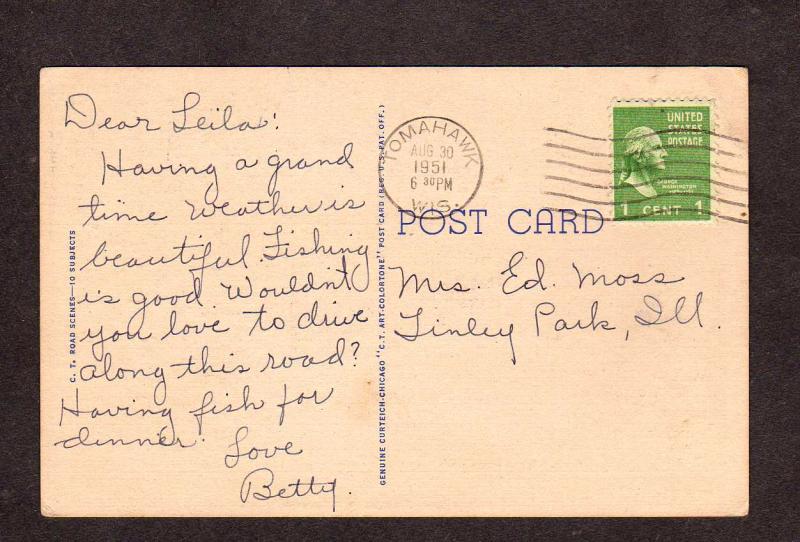 Dear Leila:
Having a grand
time Weather is
beautiful. Fishing
is good. Wouldn't
you love to drive
along this road?
Having fish for
dinner.
Love
Betty.
C. T. ROAD SCENES—10 SUBJECTS
GENUINE CURTEICH-CHICAGO "C.T. ART-COLORTONE" POST CARD (REG. U.S. PAT. OFF.)
TOMAHAWK
AUG 30
1951
6 30 PM
WIS.
UNITED
STATES
POSTAGE
GEORGE
WASHINGTON
1 CENT 1
POST CARD
Mrs. Ed. Moss
Tinley Park, Ill.